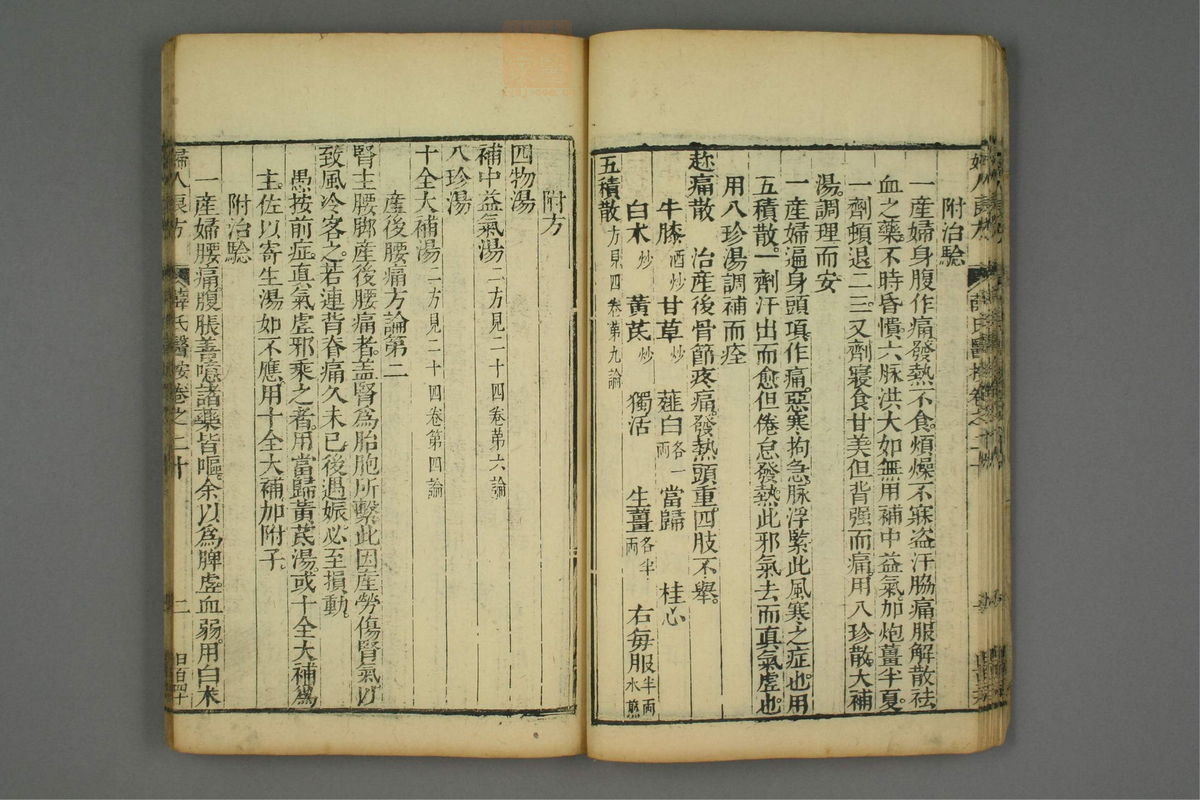 婦人良方
薛氏醫按卷之二十
附治驗
一產婦身腹作痛發熱不食煩燥不寐盗汗脇痛服解散祛
血之藥不時昏憒六脉洪大如無用補中益氣加炮薑半夏
一劑頓退二三又劑寢食甘美但背强而痛用八珍散大補
湯調理而安
一產婦遍身頭項作痛惡寒拘急脉浮緊此風寒之症也用
五積散一劑汗出而愈但倦怠發熱此邪氣去而真氣虚也
用八珍湯調補而痊
趂痛散 治產後骨節疼痛發熱頭重四肢不舉
牛膝酒炒 甘草炒 薤白各一兩 當歸 桂心
白术炒 黃芪炒 獨活 生薑各半兩 右每服半兩水煎
五積散方見四卷第九論
附方
四物湯
補中益氣湯二方見二十四卷苐六論
八珍湯
十全大補湯二方見二十四卷第四論
產後腰痛方論第二
腎主腰脚產後腰痛者盖腎爲胎胞所繫此因產勞傷腎氣以
致風冷客之若連背脊痛久未已後遇娠必至損動
愚按前症真氣虚邪乘之者用當歸黃芪湯或十全大補爲
主佐以寄生湯如不應用十全大補加附子
附治驗
一產婦腰痛腹脹善噫諸藥皆嘔余以爲脾虚血弱用白术
婦人良方
薛氏醫按卷之二十
二